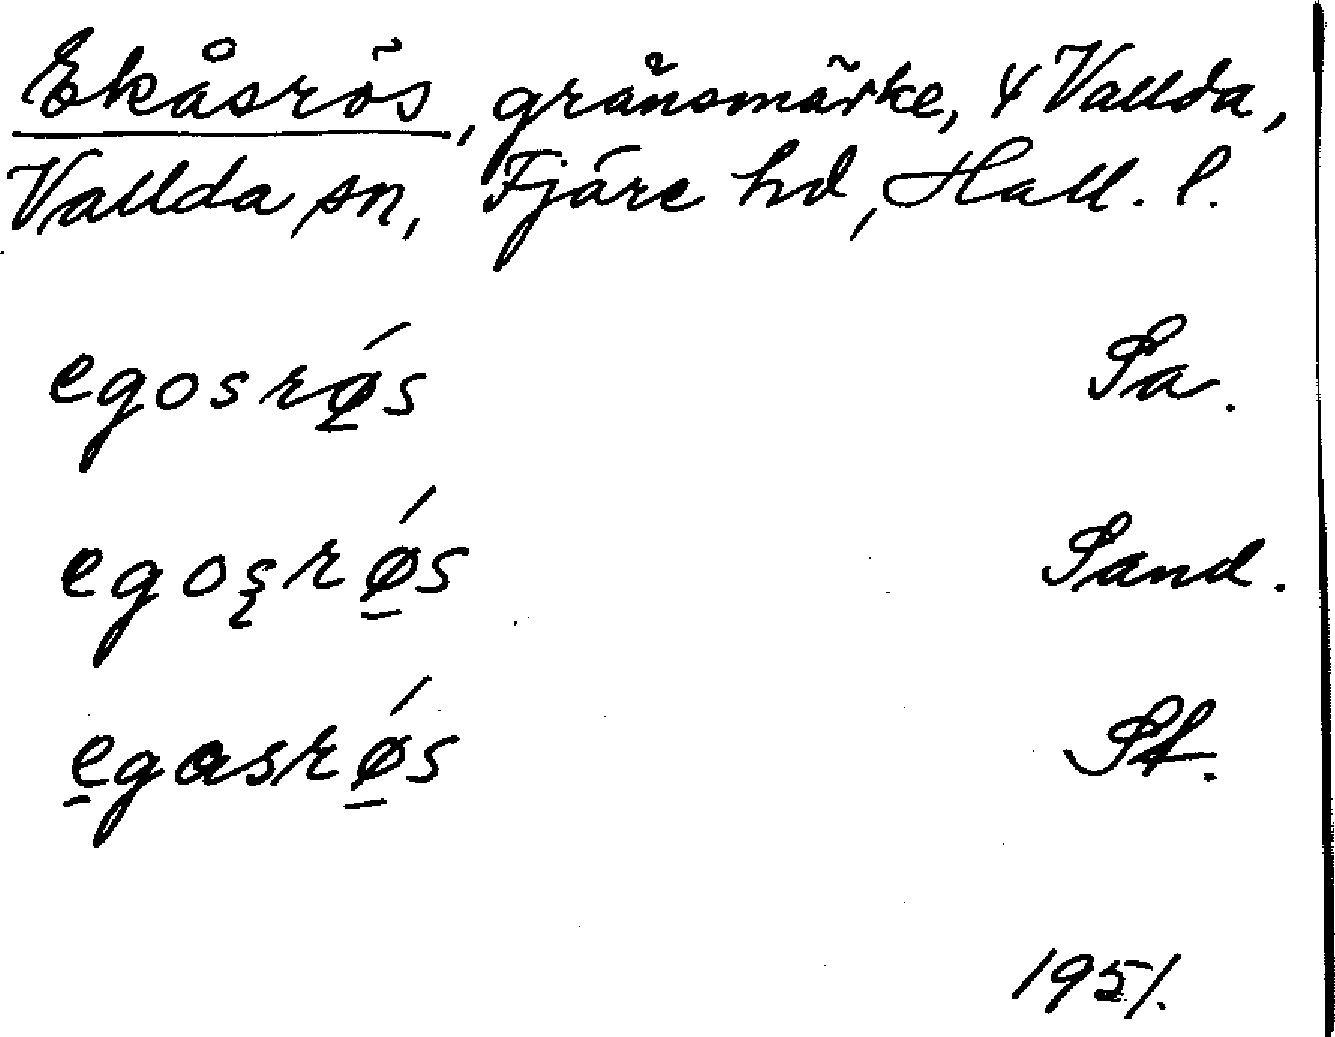 Ekåsrös, gränsmärke, 4 Vallda,
Vallda sn, Fjäre hd, Hall. l.
egosrǿ̲s Sa.
egos̨rǿ̲s Sand.
e̲gasrǿ̲s St.
1951.